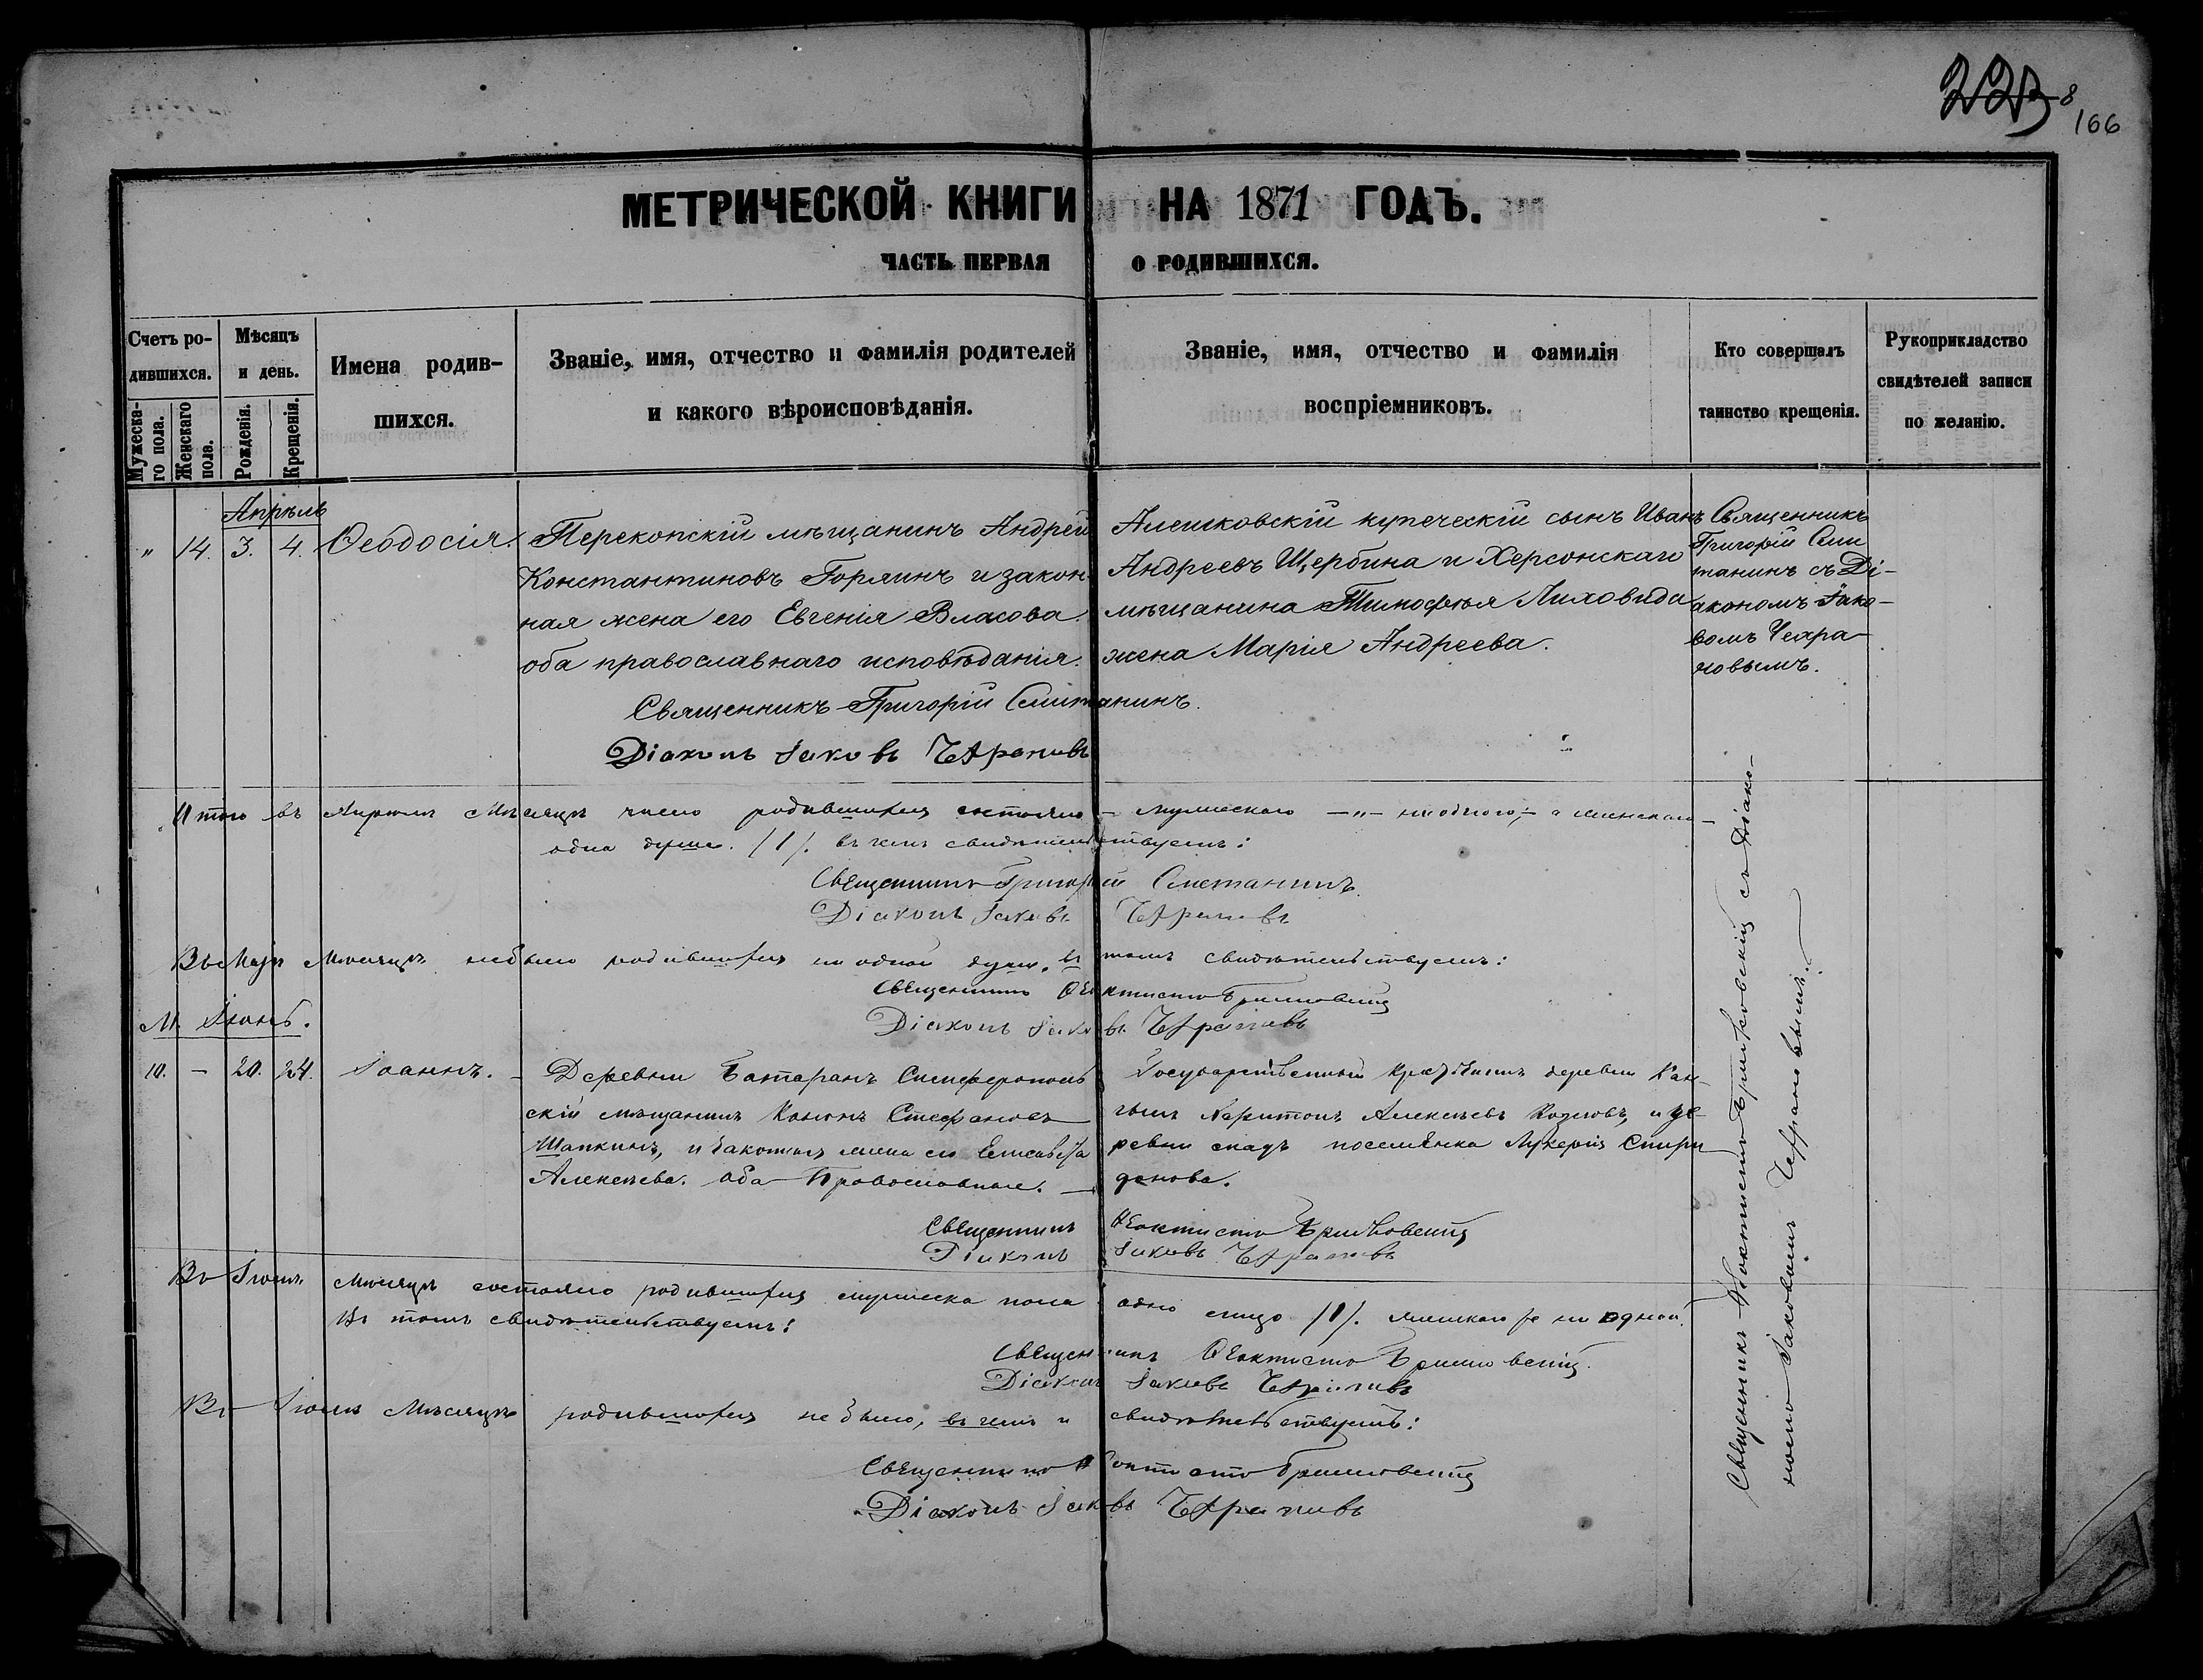 223 8
166
МЕТРИЧЕСКОЙ КНИГИ НА 1871 ГОДЪ.
ЧАСТЬ ПЕРВАЯ О РОДИВШИХСЯ.
Счетъ ро-
дившихся.
Мужеска-
го пола.
Женскаго
пола.
Мѣсяцъ
и день.
Рожденія.
Крещенія.
Имена родив-
шихся.
Званіе, имя, отчество и фамилія родителей
и какого вѣроисповѣданія.
Званіе, имя, отчество и фамилія
воспріемниковъ.
Кто совершалъ
таинство крещенія.
Рукоприкладство
свидѣтелей записи
по желанію.
Апрѣль
" 14. 3. 4. Ѳеодосія.
Перекопскій мѣщанинъ Андрей
Константиновъ Горлинъ и закон-
ная жена его Евгенія Власова.
оба православнаго исповѣданія.
Алешковскій купеческій сынъ Иванъ
Андреевъ Щербина и Херсонскаго
мѣщанина Тимофея Лиховида
жена Марія Андреева.
Священникъ
Григорій Сми
танинъ съ Ді-
акономъ Іако-
вомъ Чехра-
новымъ.
Священникъ Григорій Смитанинъ.
Діаконъ Іаковъ
Итого въ Апрѣлѣ Мѣсяцѣ число родившихся состояло – мужескаго — " — ни одного, – а женскаго –
одна душа. /1/. въ чемъ свидѣтельствуемъ:
Священникъ Григорій Сметанинъ.
Діаконъ Іаковъ
Въ Маѣ Мѣсяцѣ небыло родившихся ни одной души. въ томъ свидѣтельствуемъ:
Священникъ Ѳеоктистъ
Діаконъ Іаковъ
М. Іюнь.
10. – 20. 24. Іоаннъ. –
Деревни Симферополь
скій мѣщанинъ Кононъ Стефановъ
Шапкинъ, и законная жена его Елисавета
Алексѣева. оба Православные. —
Государственный деревни
Харитонъ Алексѣевъ Козловъ, и де-
ревни поселянка Лукерія Спири
донова.
Священникъ Ѳеоктистъ
Діаконъ Іаковъ
Въ Іюнѣ Мѣсяцѣ состояло родившихся мужеска пола одно лицо /1/. женскаго же ни одной.
Въ томъ свидѣтельствуемъ:
Священникъ Ѳеоктистъ
Діаконъ Іаковъ
Въ Мѣсяцѣ родившихся не было, въ чемъ и свидѣтельствуемъ:
Священникъ Ѳеоктистъ
Діаконъ Іаковъ
Священникъ Ѳеоктистъ съ Діако-
номъ Іаковомъ